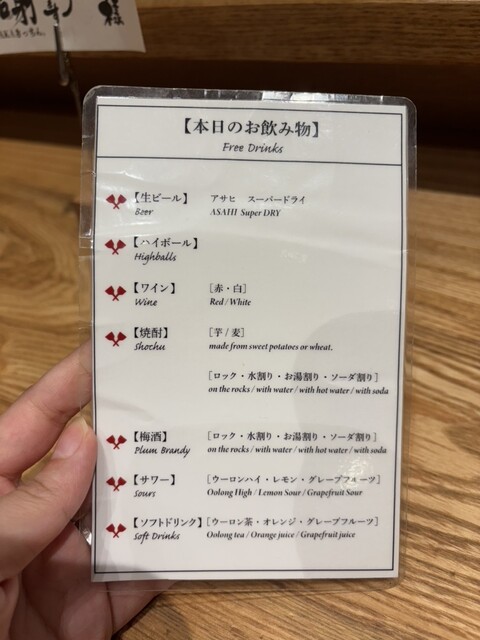 様
【本日のお飲み物】
Free Drinks
【生ビール】 アサヒ スーパードライ
Beer ASAHI Super DRY
【ハイボール】
Highballs
【ワイン】 [赤・白]
Wine Red / White
【焼酎】 [芋 / 麦]
Shochu made from sweet potatoes or wheat.
[ロック・水割り・お湯割り・ソーダ割り]
on the rocks / with water / with hot water / with soda
【梅酒】 [ロック・水割り・お湯割り・ソーダ割り]
Plum Brandy on the rocks / with water / with hot water / with soda
【サワー】 [ウーロンハイ・レモン・グレープフルーツ]
Sours Oolong High / Lemon Sour / Grapefruit Sour
【ソフトドリンク】 [ウーロン茶・オレンジ・グレープフルーツ]
Soft Drinks Oolong tea / Orange juice / Grapefruit juice